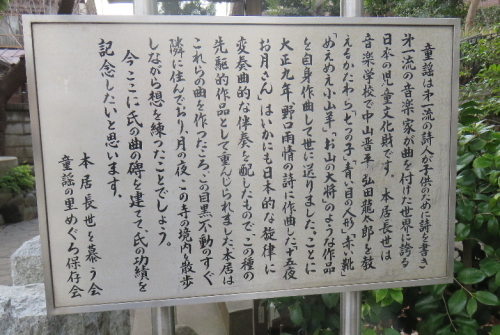 童謡は第一流の詩人が子供のために詩を書き
第一流の音楽家が曲を付けた世界に誇る
日本の児童文化財です。本居長世は
音楽学校で中山晋平、弘田龍太郎を教
えるかたわら「七つの子」「青い目の人形」「赤い靴」
「めえめえ小山羊」「お山の大将」のような作品
を自身作曲して世に送りました。ことに
大正九年、野口雨情の詩に作曲した「十五夜
お月さん」はいかにも日本的な旋律に
変奏曲的な伴奏を配したもので、この種の
先駆的作品として重んじられました。本居は
これらの曲を作ったころ、この目黒不動のすぐ
隣に住んでおり、月の夜、この寺の境内を散歩
しながら想を練ったことでしょう。
今ここに氏の曲の碑を建てて、氏の功績を
記念したいと思います。
本居長世を慕う会
童謡の里めぐろ保存会